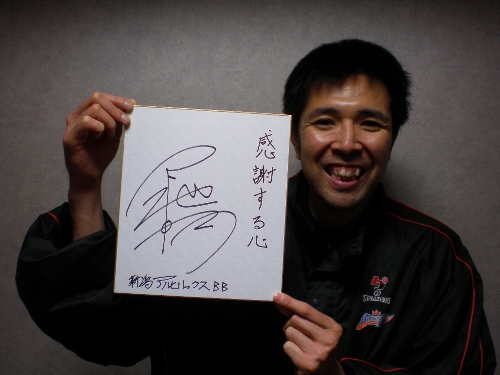 感謝する心
新潟アルビレックスBB
SPALDING